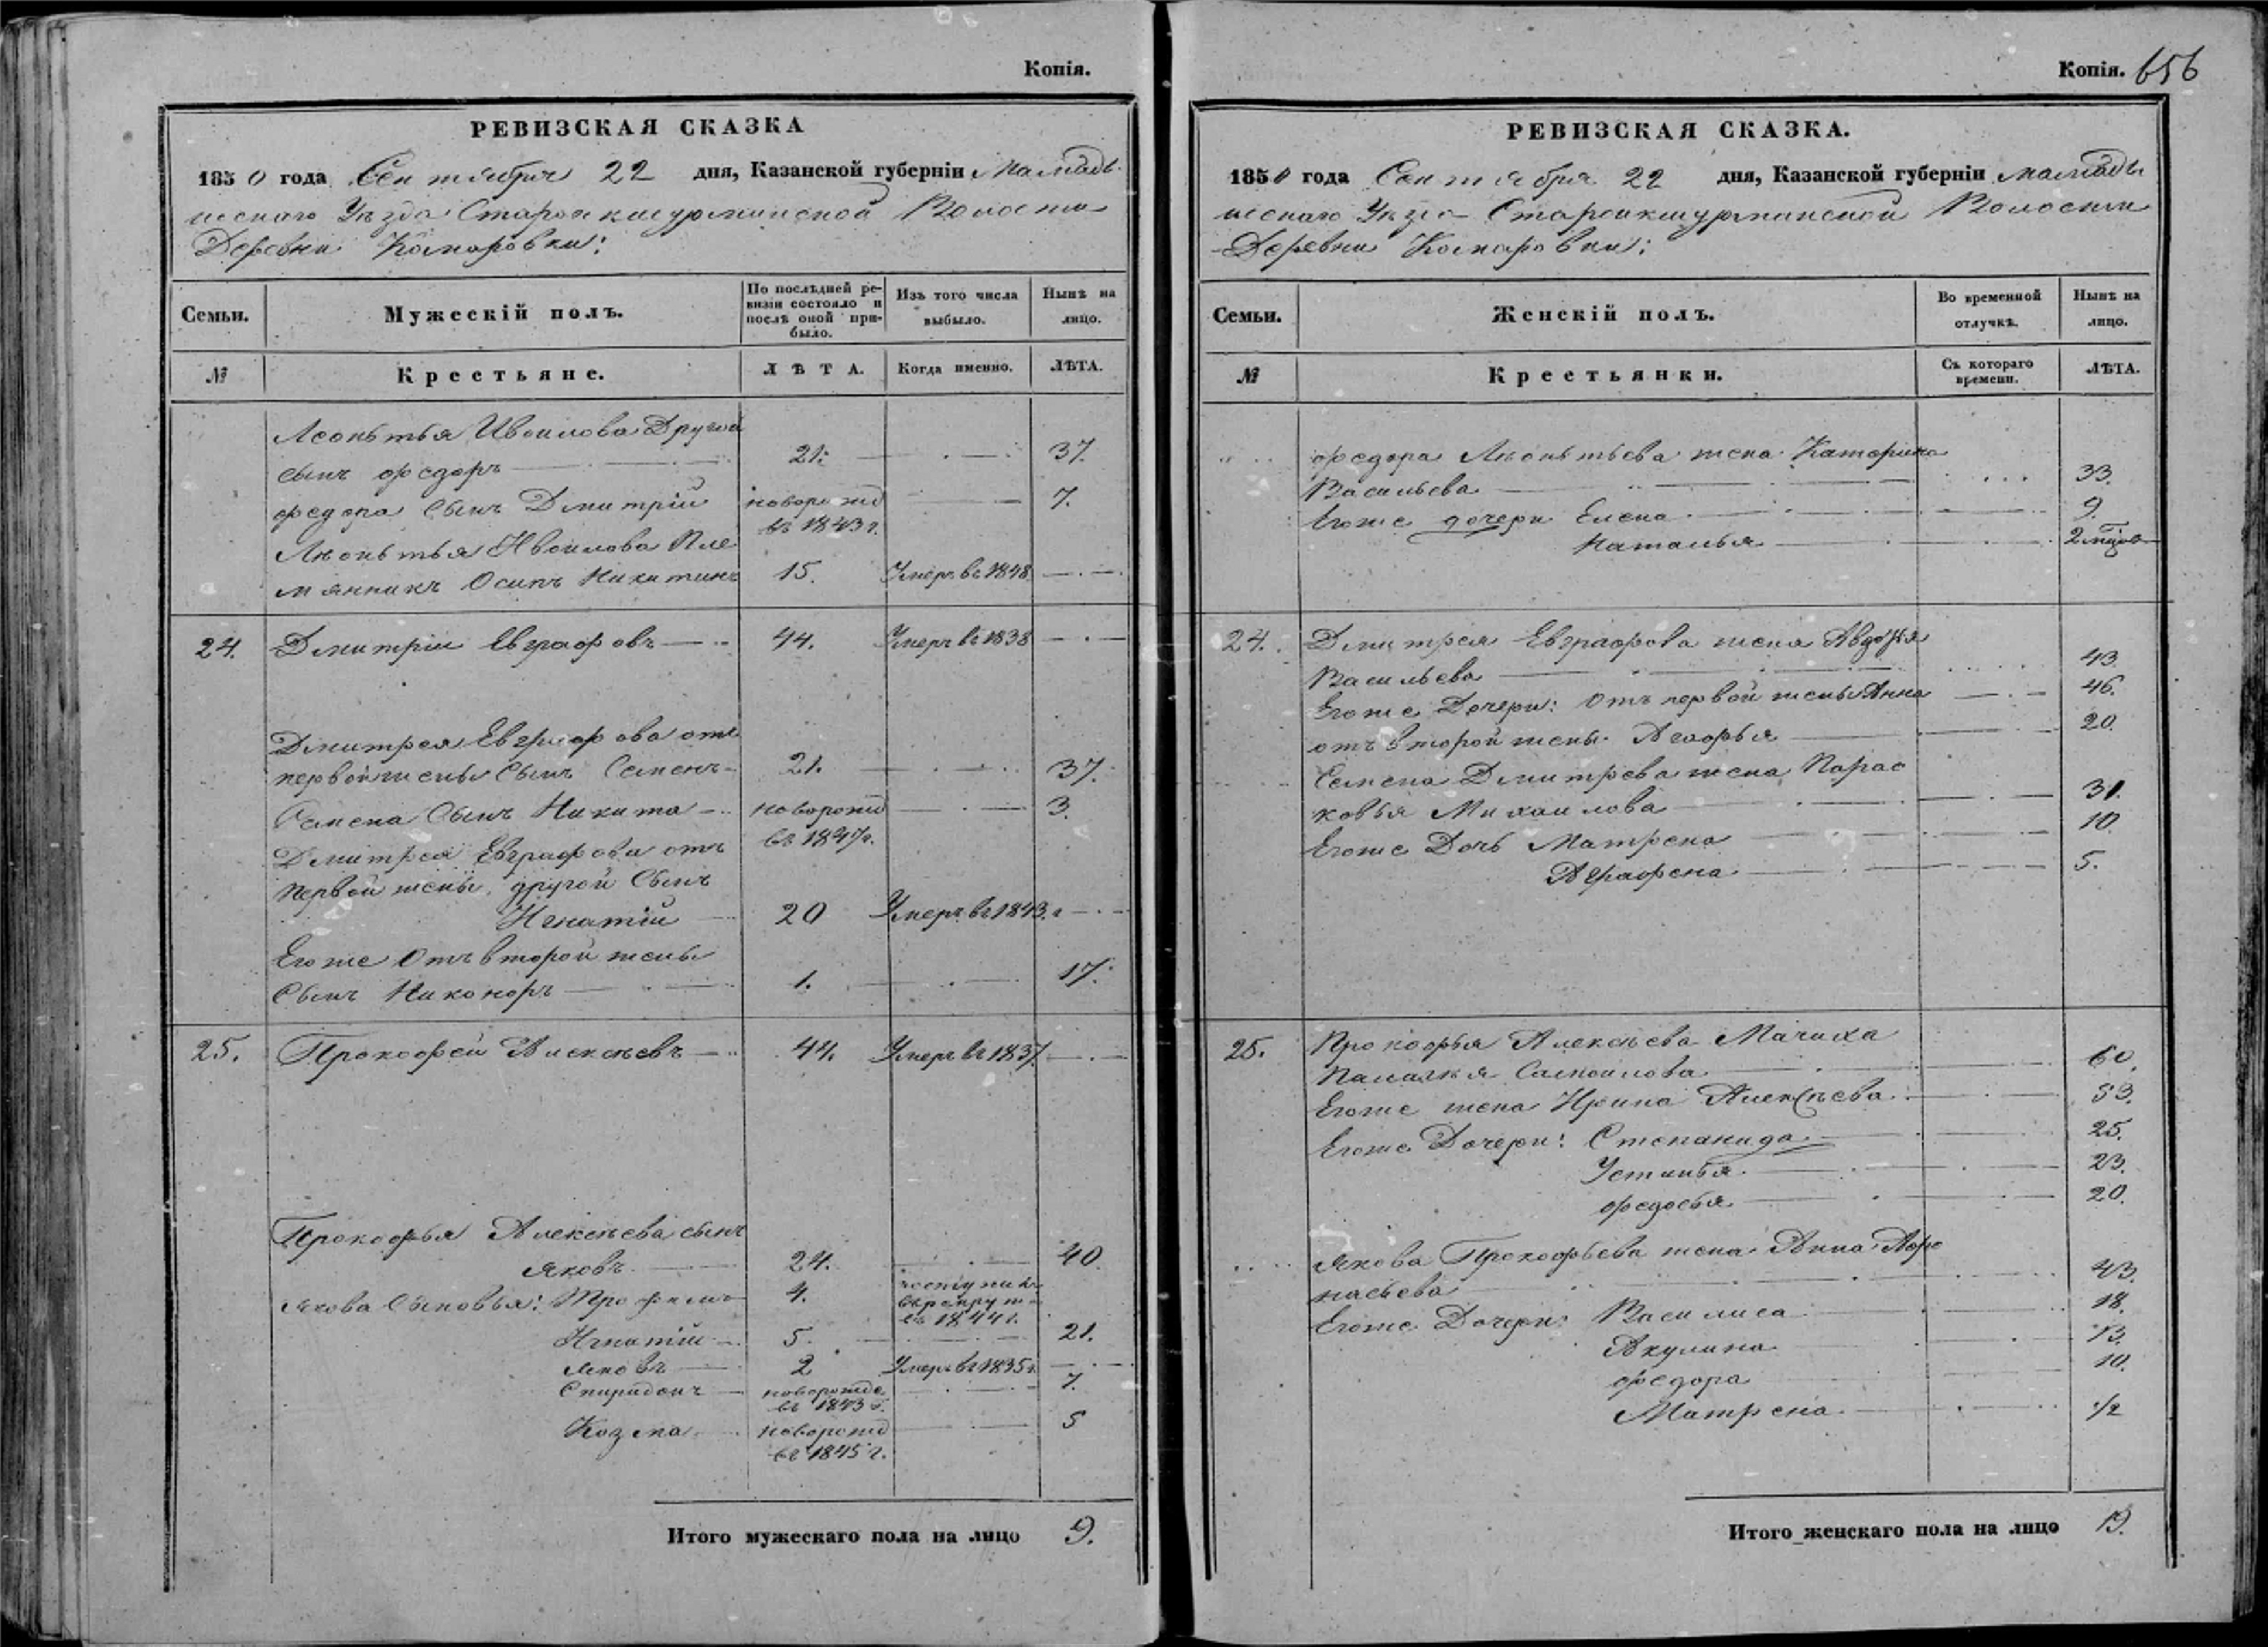 Копія.
РЕВИЗСКАЯ СКАЗКА
1850 года Сентября 22 дня, Казанской губерніи Мамады-
шскаго Уѣзда Волости
Деревни Комаровки:
Семьи. Мужескій полъ. По послѣдней ре-визіи состояло и послѣ оной при-было. Изъ того числа выбыло. Нынѣ на лицо.
№ Крестьяне. ЛѢТА. Когда именно. ЛѢТА.
Леонтья Другой
сынъ Федоръ 21. 37.
Федора сынъ Дмитрій новорожд въ 1843 г. 7.
Пле
мянникъ Осипъ Никитинъ 15. Умеръ въ 1848
24. Дмитріи Евграфовъ 44. Умеръ въ 1838
Дмитрея Евграфова отъ
первой жены сынъ Семенъ 21. 37.
Семена сынъ Никита новорожд въ 1847 г. 3.
Дмитрея Евграфова отъ
первой жены другой сынъ
Игнатій 20 Умеръ въ 1843 г
Егоже отъ второй жены
сынъ Никоноръ 1. 17.
25. Прокофей Алексѣевъ 44. Умеръ въ 1837
Прокофья Алексѣева сынъ
Яковъ 24. 40
Якова сыновья: Трофимъ 4. въ 1844 г.
Игнатій 5. 21.
Яковъ 2 Умеръ въ 1835 г
Спиридонъ новорожде въ 1843 г. 7.
Козма новорожд въ 1845 г. 5
Итого мужескаго пола на лицо 9.
Копія. 656
РЕВИЗСКАЯ СКАЗКА.
1850 года Сентября 22 дня, Казанской губерніи Мамады
шскаго Уѣзда Волости
Деревни Комаровки:
Семьи. Женскій полъ. Во временной отлучкѣ. Нынѣ на лицо.
№ Крестьянки. Съ котораго времени. ЛѢТА.
Федора жена Катерина
Васильева 33.
Егоже дочери Елена 9.
Наталья 2
24. Дмитрея Евграфова жена Авдотья
Васильева 43.
Егоже Дочери: отъ первой жены Анна 46.
отъ второй жены Агафья 20.
Семена Дмитрева жена Парас
ковья Михаилова 31.
Егоже Дочь Матрена 10.
Аграфена 5.
25. Прокофья Алексѣева Мачиха
Самоилова 60.
Егоже жена Ирина Алексѣева 53.
Егоже Дочери: Степанида 25.
Устинья 23.
Федосья 20.
Якова Прокофьева жена Анна Афо
насьева 43.
Егоже Дочери: Василиса 18.
Акулина 13.
Федора 10.
Матрена 1/2
Итого женскаго пола на лицо 19.